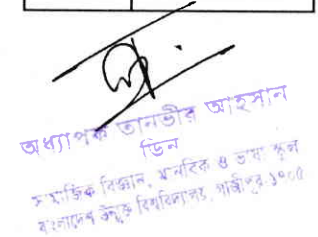 অধ্যাপক তানভীর আহসান
ডিন
সামাজিক বিজ্ঞান, মানবিক ও ভাষা স্কুল
বাংলাদেশ উন্মুক্ত বিশ্ববিদ্যালয়, গাজীপুর-১৭০৫